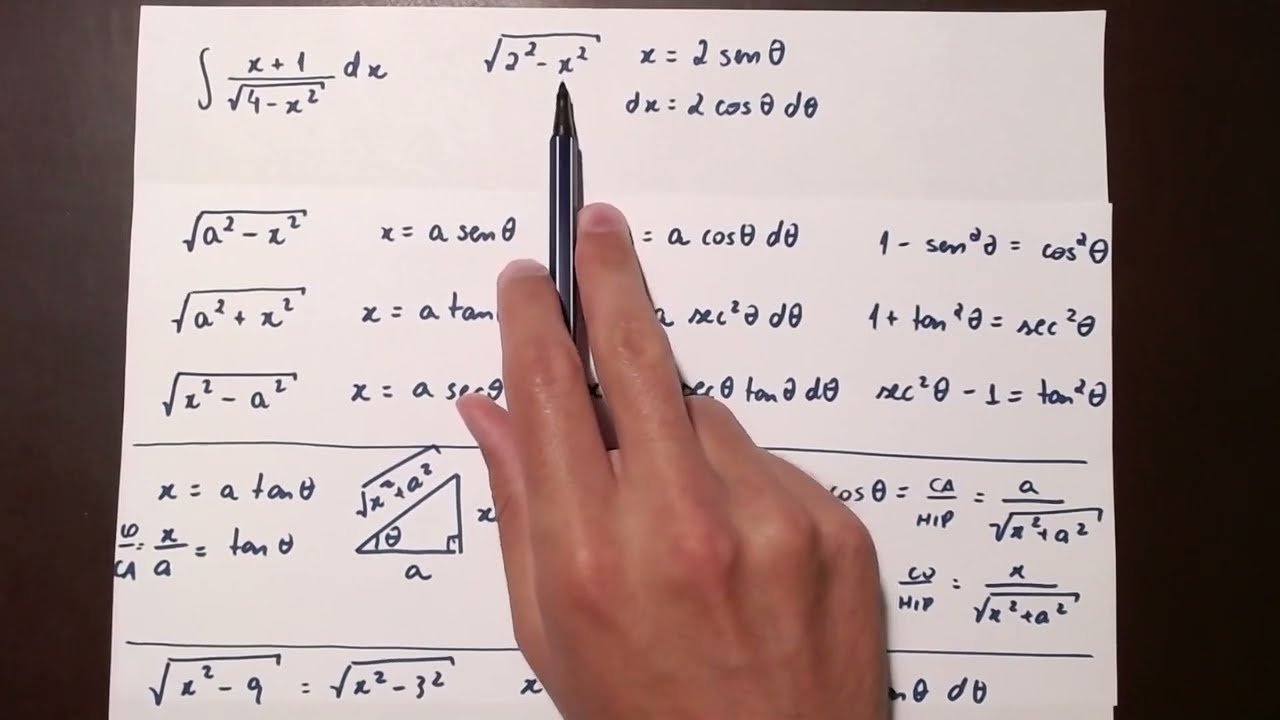 ∫ x + 1 / √(4 - x²) dx √(2² - x²) x = 2 senθ
dx = 2 cosθ dθ
√(a² - x²) x = a senθ = a cosθ dθ 1 - sen²θ = cos²θ
√(a² + x²) x = a tan sec²θ dθ 1 + tan²θ = sec²θ
√(x² - a²) x = a secθ secθ tanθ dθ sec²θ - 1 = tan²θ
x = a tanθ √(x² + a²) x cosθ = CA / HIP = a / √(x² + a²)
CO / CA = x / a = tanθ θ a CO / HIP = x / √(x² + a²)
√(x² - 9) = √(x² - 3²) x θ dθ